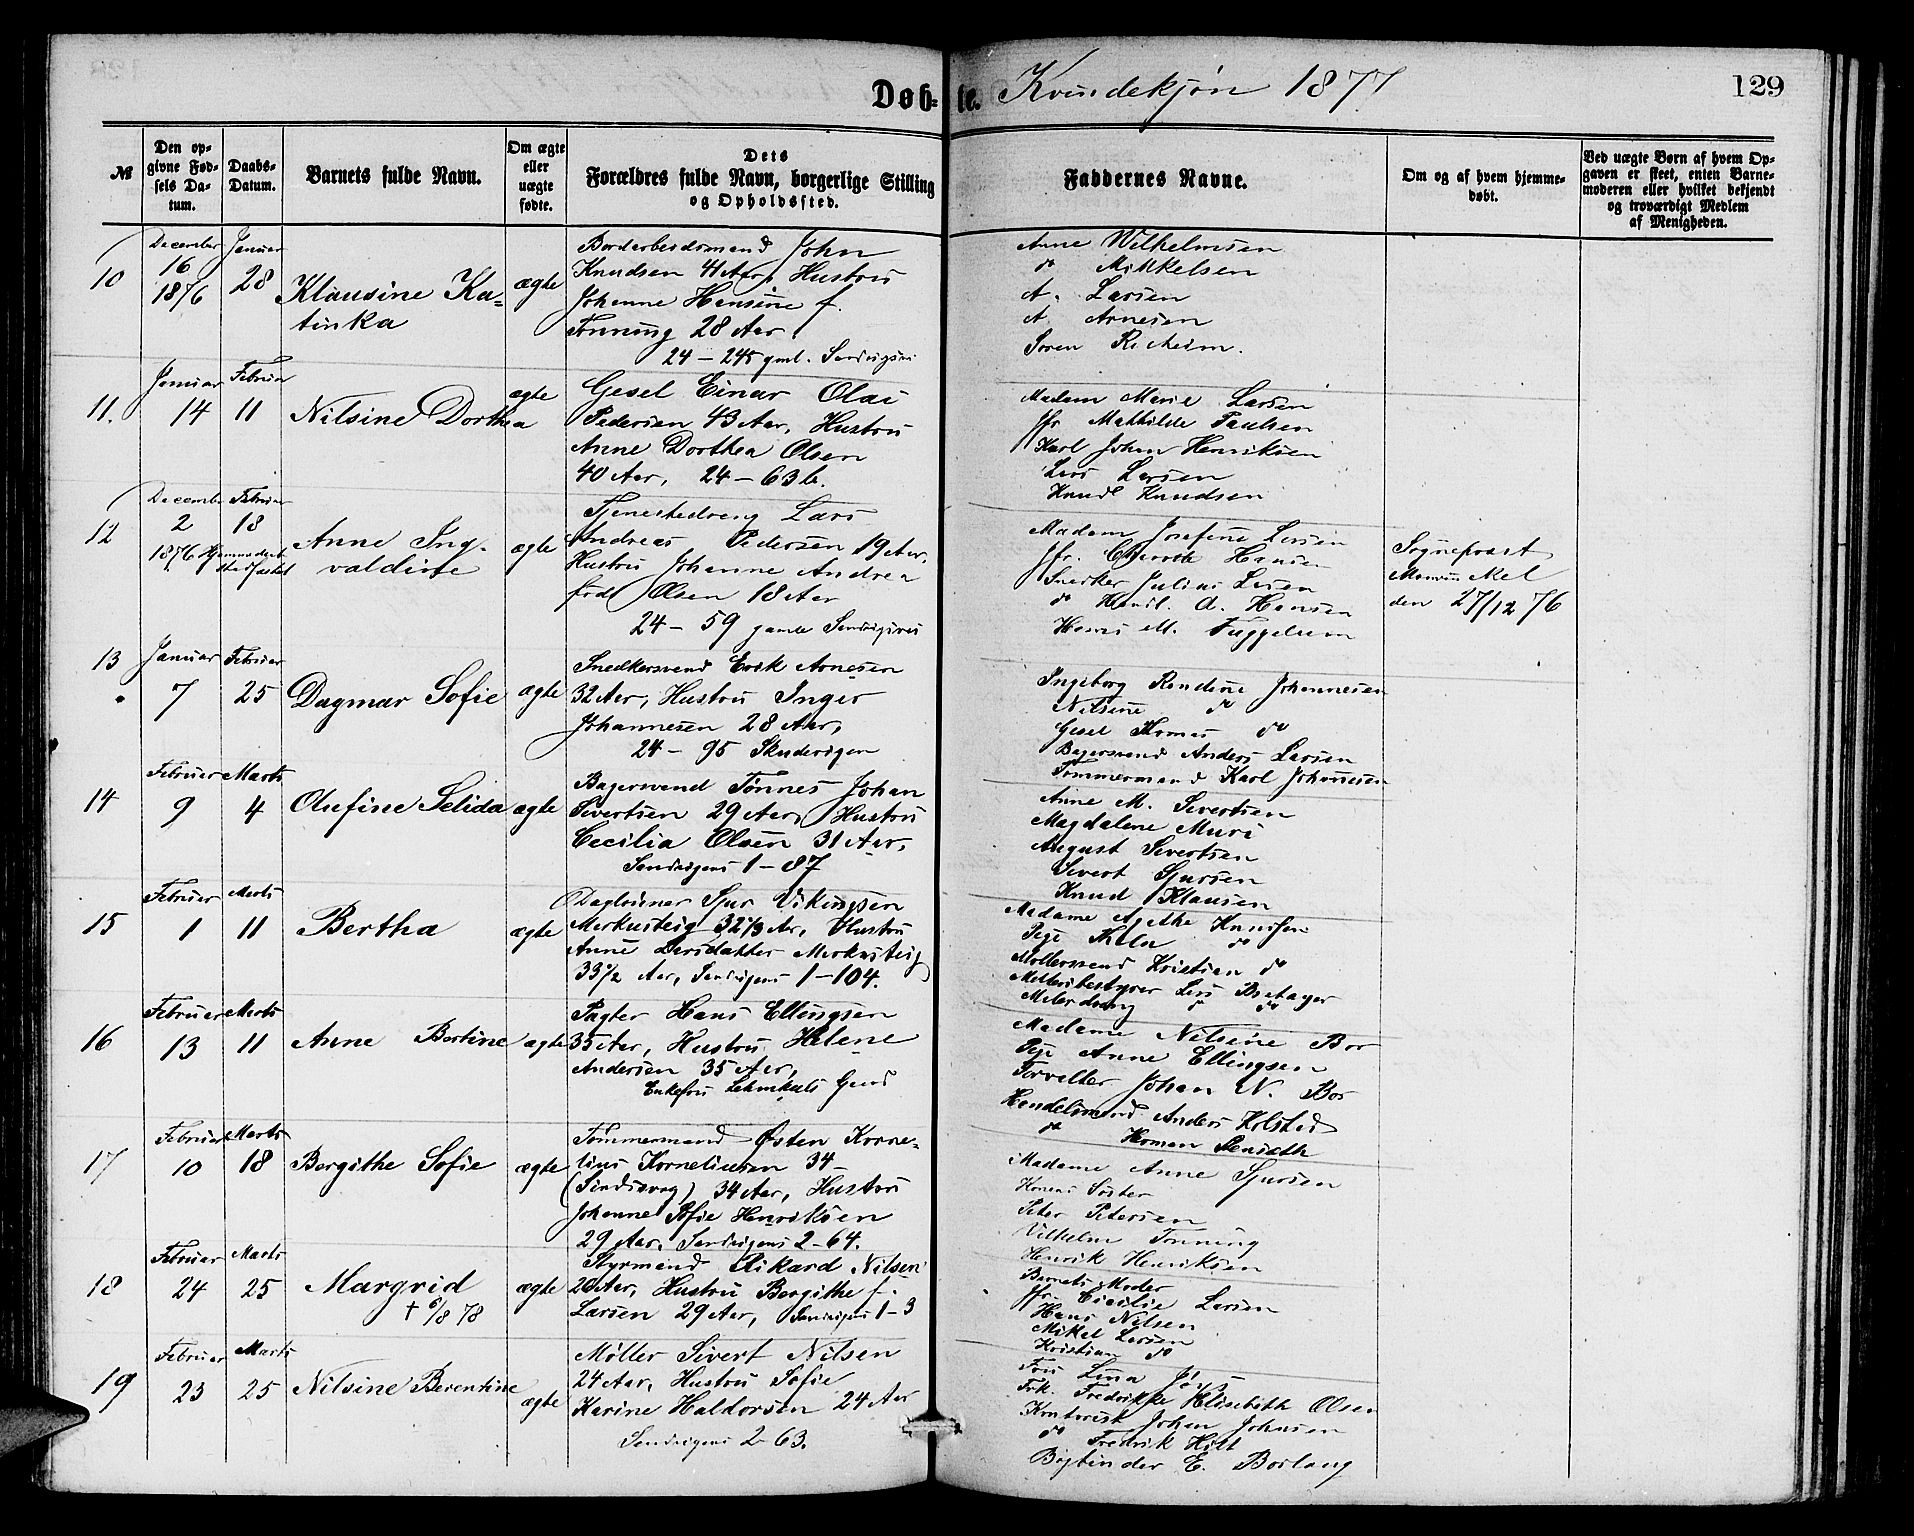 Døb-te. Kvindekjøn 1877
129
№
Den op-
givne Fød-
sels Da-
tum.
Daabs-
Datum.
Barnets fulde Navn.
Om ægte
eller
uægte
fødte.
Dets
Forældres fulde Navn, borgerlige Stilling
og Opholdssted.
Faddernes Navne.
Om og af hvem hjemme-
døbt.
Ved uægte Børn af hvem Op-
gaven er skeet, enten Barne-
moderen eller hvilket bekjendt
og troværdigt Medlem
af Menigheden.
10
December
16
1876
Januar
28
Klausine Ka-
tinka
ægte
John
Knudsen 41 Aar, Hustru
Johanne Hansine f.
Tonning 28 Aar
24 – 245 gml. Sandvigsv
Anne Wilhelmsen
do Mikkelsen
A. Larsen
A. Arnesen
Søren
11.
Januar
14
Februar
11
Nilsine Dorthea
ægte
Gesel Einar Olai
Pedersen 43 Aar, Hustru
Anne Dorthea Olsen
40 Aar, 24 – 63 b.
Madam Marie Larsen
Jfr Mathilde Paulsen
Karl Johan Henriksen
Lars Larsen
Knud Knudsen
12
December
2
1876
Februar
18
Hjemmedaab
stadfæstet
Anne Ing-
valdine
ægte
Tjenestedreng Lars
Andreas Pedersen 19 Aar,
Hustru Johanne Andrea
født Olsen 18 Aar
24 – 59 gamle Sandvigsvei
Madam Josefine Larsen
Jfr. Hansen
Snedker Julius Larsen
do Handl. A. Hansen
Hans M.
Sogneprest
den 27/12 76
13
Januar
7
Februar
25
Dagmar Sofie
ægte
Snedkersvend Erik Arnesen
32 Aar, Hustru Inger
Johannesen 28 Aar,
24 – 95 Skudevigen
Ingeborg Johannesen
Nilsine do
Gesel Tomas do
Bagersvend Anders Larsen
Tømmermand Karl Johannesen
14
Februar
9
Marts
4
Olufine Selida
ægte
Bagersvend Tønnes Johan
Sivertsen 29 Aar, Hustru
Cecilia Olsen 31 Aar,
Sandvigens 1 – 87
Anne M. Sivertsen
Magdalene Muri
August Sivertsen
Sivert Sjursen
Knud Klausen
15
Februar
1
Marts
11
Bertha
ægte
Daglønner Sjur Vikingsen
Markusteig 32 1/3 Aar, Hustru
Anne Larsdatter Markusteig
33 1/2 Aar, Sandvigens 1 – 104.
Madame Agethe
Pige do
Møllersvend Kristian do
Møllebestyrer Lars
16
Februar
13
Marts
11
Anne Bertine
ægte
Pagter Hans Ellingsen
35 Aar, Hustru Helene
Andersen 35 Aar,
Enkefru Lehmkuls Gaard
Madame Nilsine Bor
Pige Anne Ellingsen
Forvalter Johan N. Bor
Handelsmand Anders Kolstad
do Herman
17
Februar
10
Marts
18
Bergithe Sofie
ægte
Tømmermand Østen Korne-
lius Korneliusen 34
34 Aar, Hustru
Johanne Sofie Henriksen
29 Aar, Sandvigens 2 – 64.
Madame Anne Sjursen
Konens Søster
Peter Petersen
Vilhelm Tonning
Henrik Henriksen
18
Februar
24
Marts
25
Margrid
† 6/8 78
ægte
Styrmand Rikard Nilsen
26 Aar, Hustru Bergithe f.
Larsen 29 Aar, Sandvigens 1 – 3
Barnets Moder
Jfr. Cicilie Larsen
Hans Nilsen
Mikal Larsen
Kristian do
19
Februar
23
Marts
25
Nilsine Berentine
ægte
Møller Sivert Nilsen
24 Aar, Hustru Sofie
Karine Haldorsen 24 Aar
Sandvigens 2 – 63.
Fru Lina
Frk. Fredrikke Elisabeth Olsen
Kontorist Johan Johnsen
do Fredrik Hilt
Bogbinder E. Borlaug